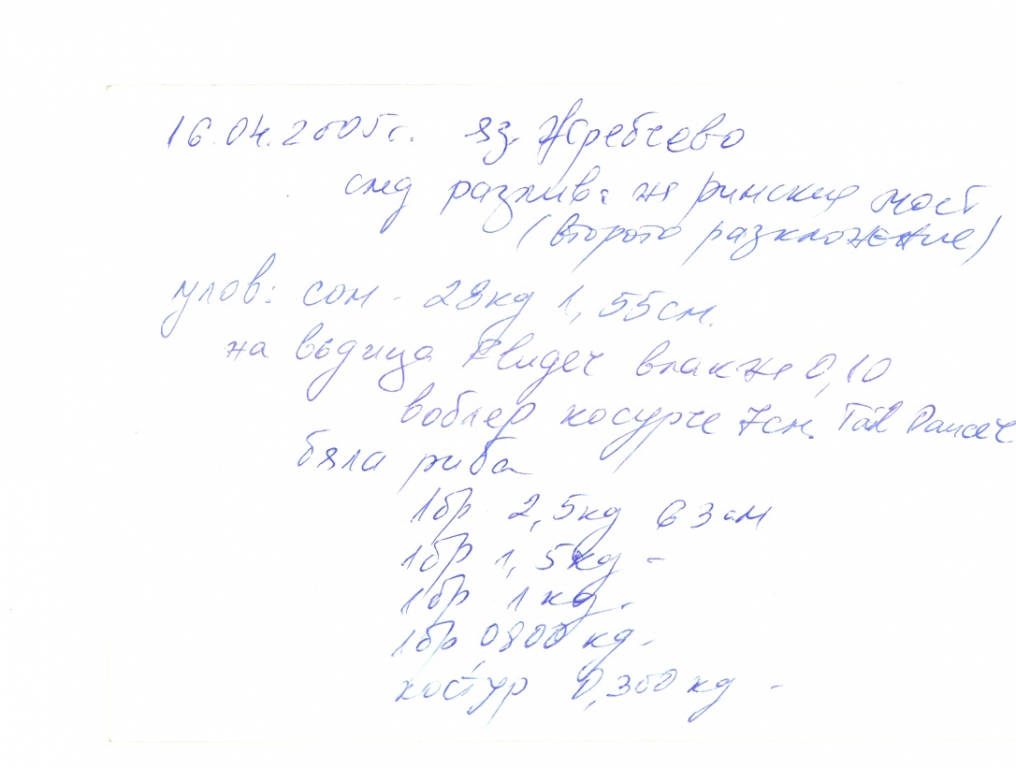 16.04.2005г. яз. Жребчево
след разлив: жп римския мост
(второто разклонение)
улов: сом - 28кд 1,55см.
на въдица влакно 0,10
воблер косурче 7см. Tail Dancer
бяла риба
1бр 2,5кд 63см
1бр 1,5кд -
1бр 1кд.
1бр 0,800 кд-
костур 0,300кд -